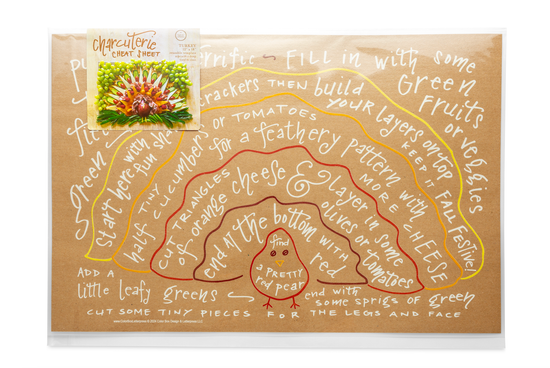 charcuterie
CHEAT SHEET
TURKEY
terrific FILL in with some
Green
Fruits
or veggies
green
Start here with
fun sha
crackers THEN build
YOUR layers on top
KEEP IT FALL Festive!
half TINY
CUCUMBERS or TOMATOES
for a feathery pattern with
MORE CHEESE
Cut TRIANGLES
of orange cheese & layer in some
olives or tomatoes
end AT the bottom WITH
red
find
a PRETTY
red pear
ADD A
little leafy greens
end with
some sprigs of green
CUT SOME TINY PIECES FOR THE LEGS AND FACE